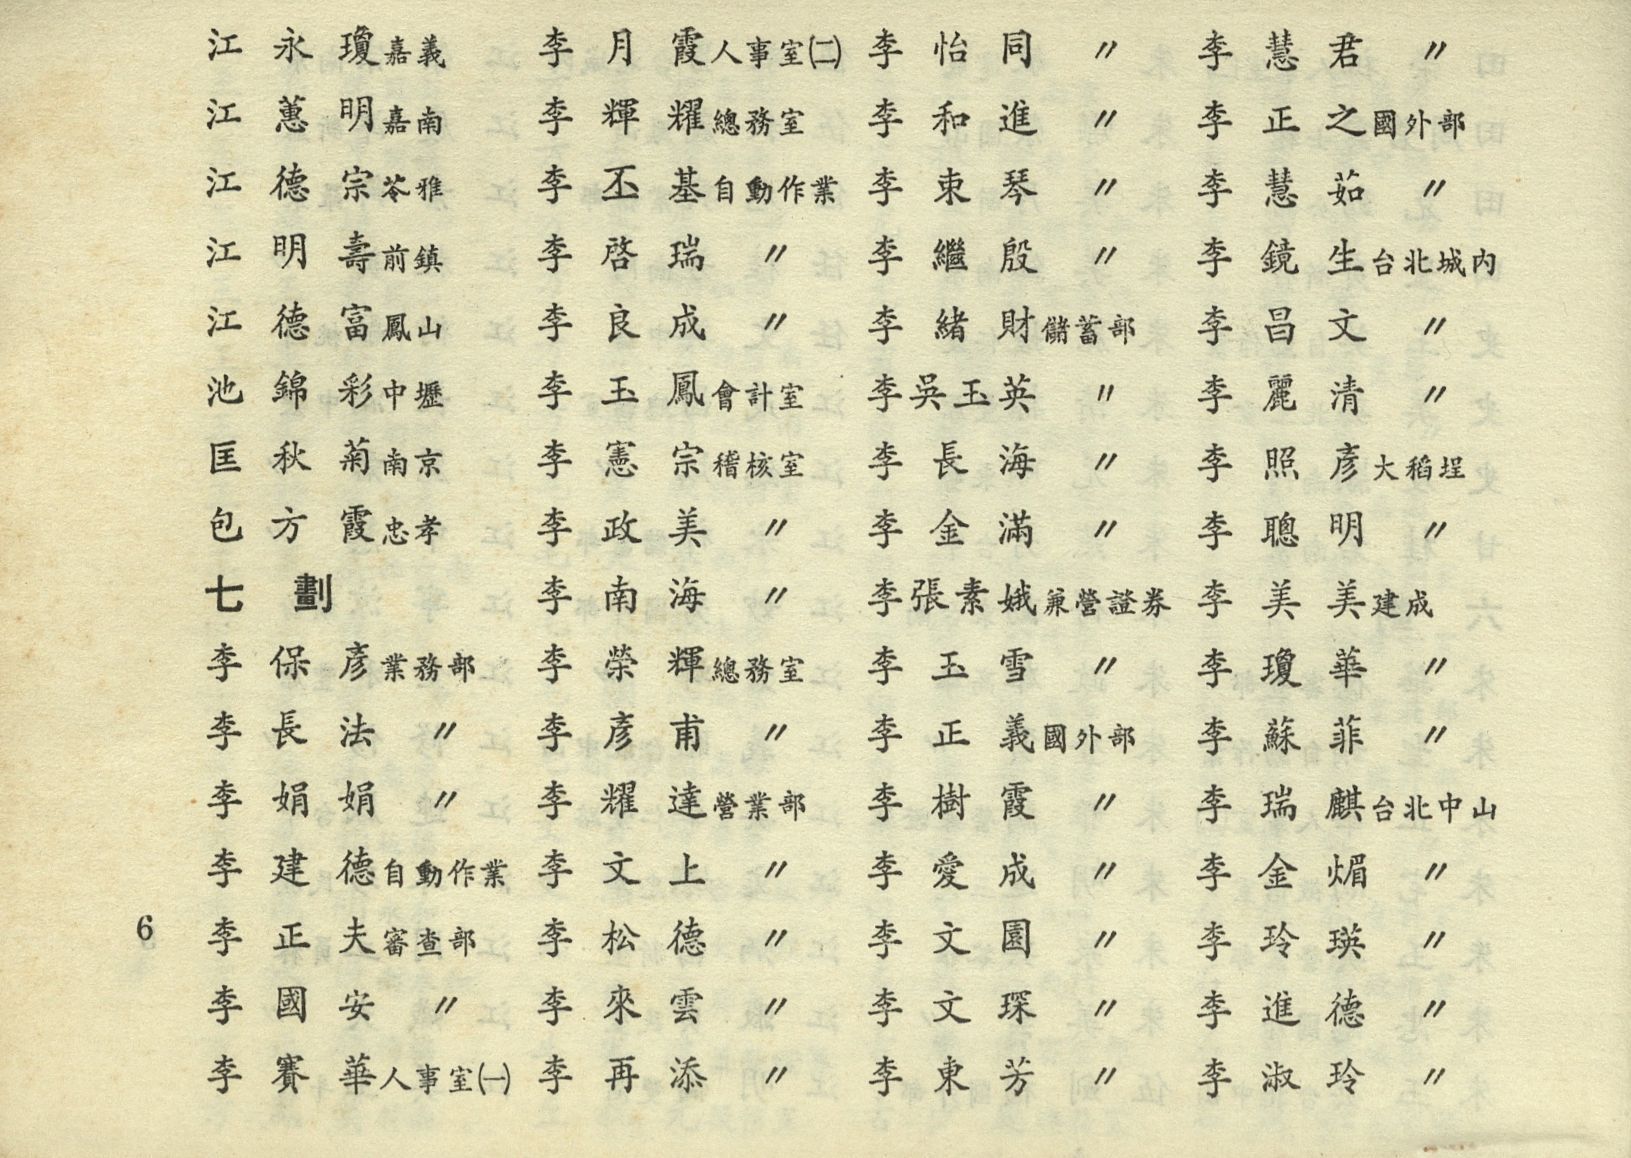 江永瓊嘉義
江蕙明嘉南
江德宗苓雅
江明壽前鎮
江德富鳳山
池錦彩中壢
匡秋菊南京
包方霞忠孝
七劃
李保彥業務部
李長法〃
李娟娟〃
李建德自動作業
李正夫審查部
李國安〃
李賽華人事室㈠
李月霞人事室㈡
李輝耀總務室
李丕基自動作業
李啓瑞〃
李良成〃
李玉鳳會計室
李憲宗稽核室
李政美〃
李南海〃
李榮輝總務室
李彥甫〃
李耀達營業部
李文上〃
李松德〃
李來雲〃
李再添〃
李怡同〃
李和進〃
李束琴〃
李繼殷〃
李緒財儲蓄部
李吳玉英〃
李長海〃
李金滿〃
李張素娥兼營證券
李玉雪〃
李正義國外部
李樹霞〃
李愛成〃
李文園〃
李文琛〃
李東芳〃
李慧君〃
李正之國外部
李慧茹〃
李鏡生台北城內
李昌文〃
李麗清〃
李照彥大稻埕
李聰明〃
李美美建成
李瓊華〃
李蘇菲〃
李瑞麒台北中山
李金煝〃
李玲瑛〃
李進德〃
李淑玲〃
6